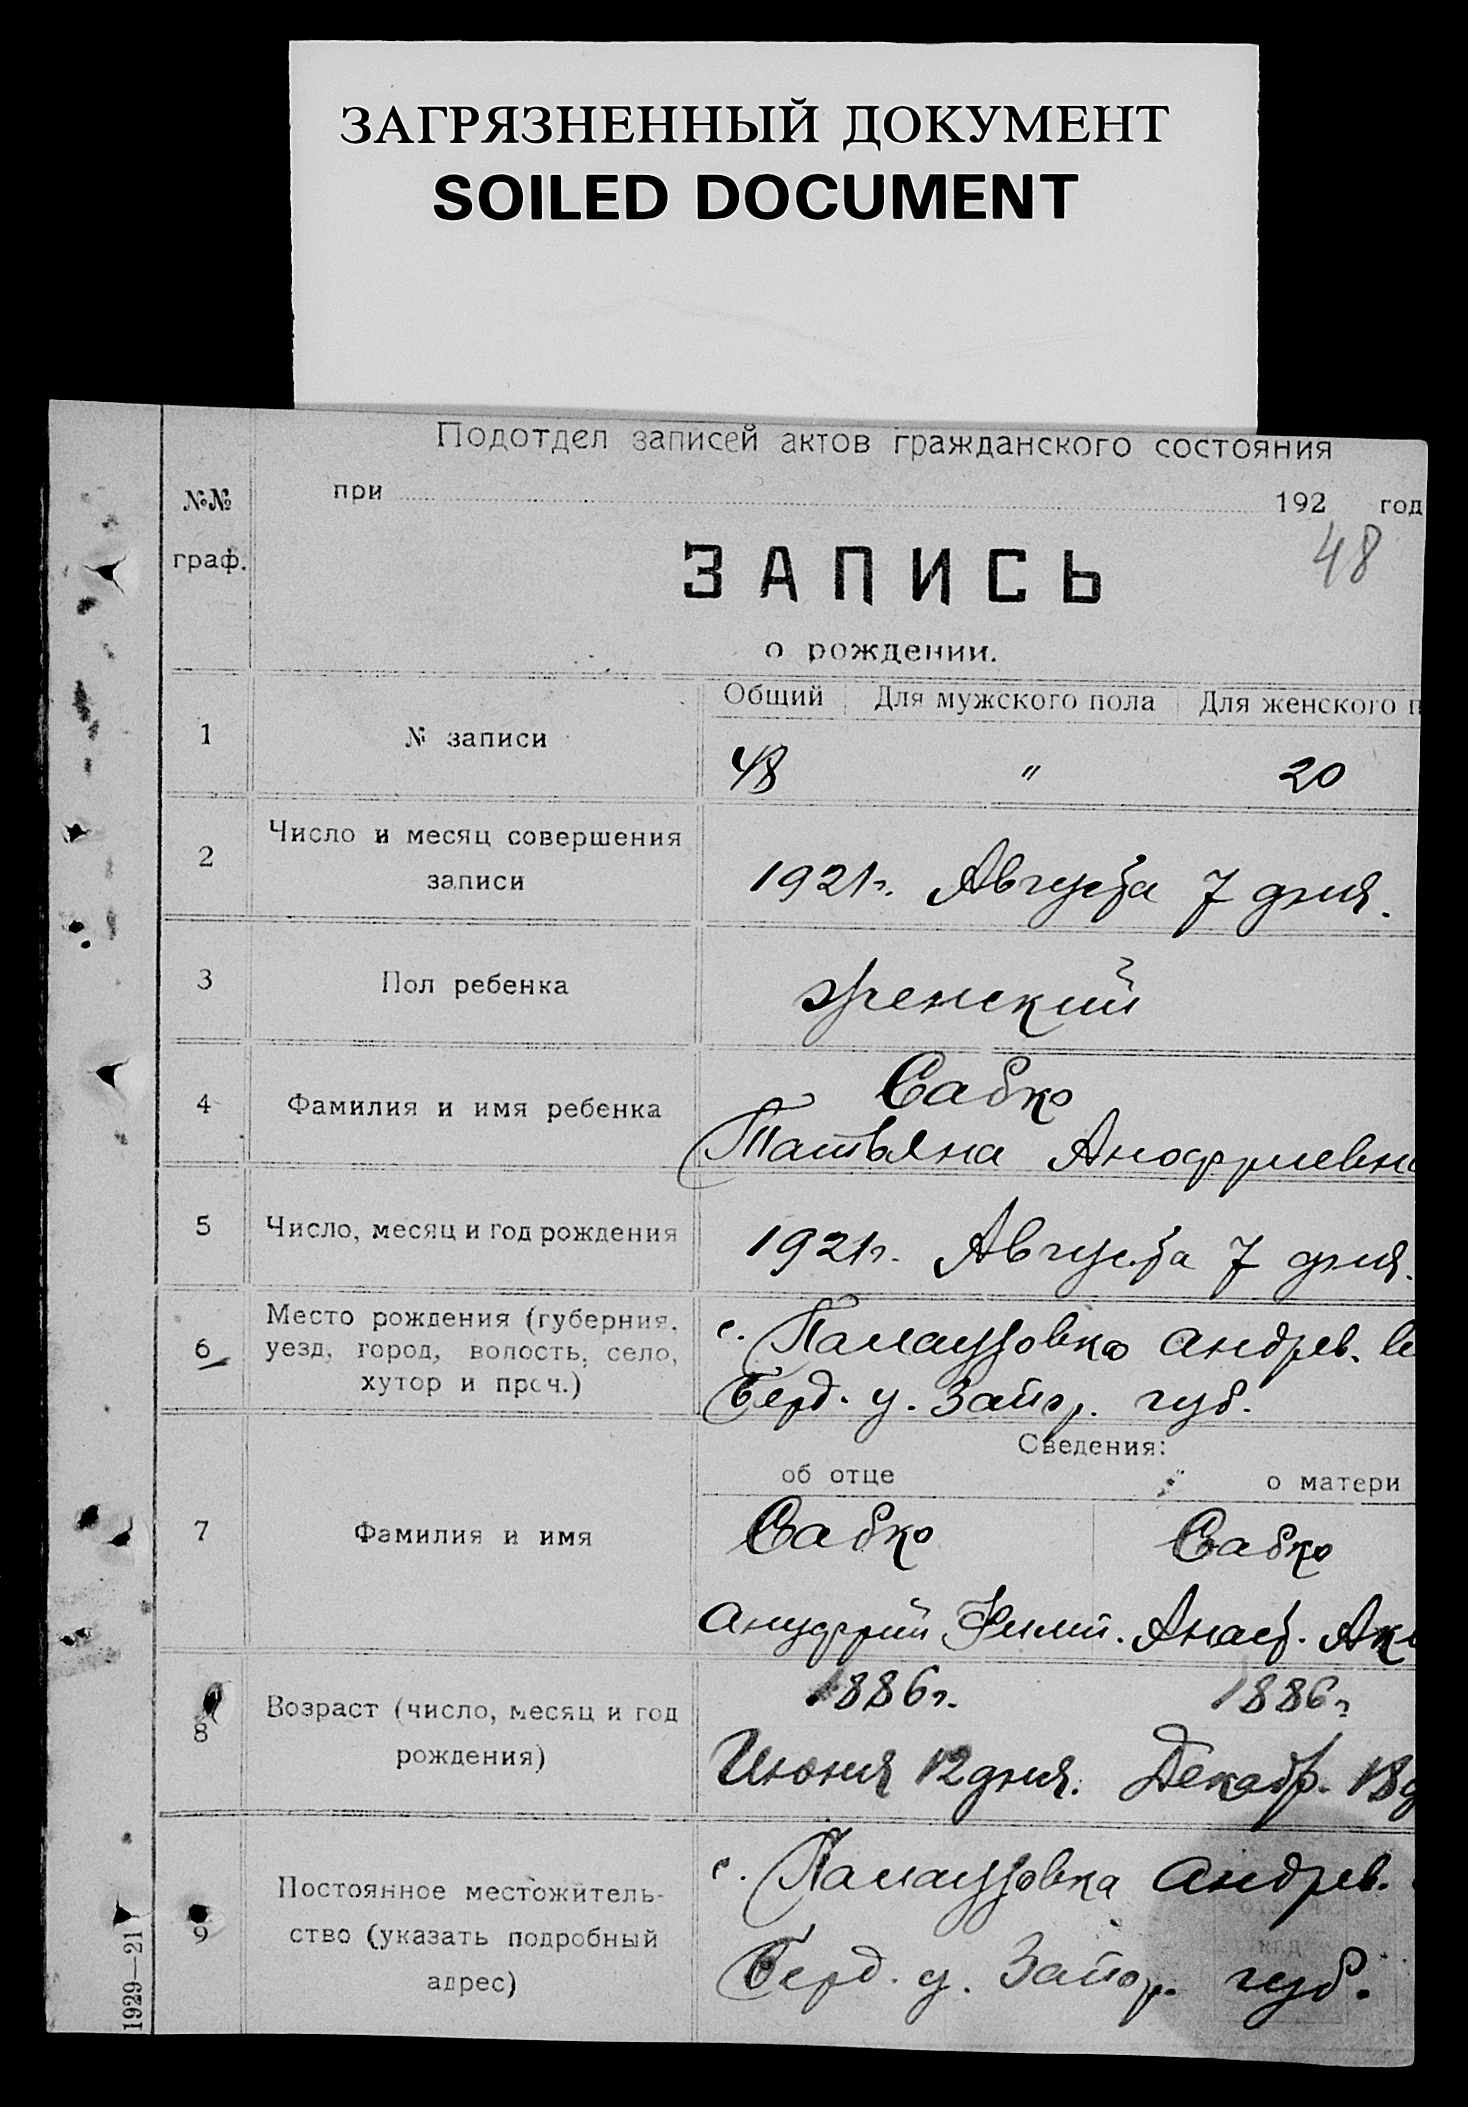 ЗАГРЯЗНЕННЫЙ ДОКУМЕНТ
SOILED DOCUMENT
Подотдел записей актов гражданского состояния
при 192 год
№№
граф.
48
ЗАПИСЬ
о рождении.
Общий Для мужского пола Для женского п
1 № записи 48 " 20
2 Число и месяц совершения
записи
1921г. Августа 7 дня.
3 Пол ребенка женский
4 Фамилия и имя ребенка
Сабко
Татьяна Анофриевна
5 Число, месяц и год рождения 1921г. Августа 7 дня.
6 Место рождения (губерния,
уезд, город, волость, село,
хутор и проч.)
с. Памаузовка Андрев.
Берд. у. Запор. губ.
Сведения:
об отце о матери
7 Фамилия и имя
Сабко Сабко
Ануфрий Филип. Анаст.
8 Возраст (число, месяц и год
рождения)
1886г. 1886г
Июня 12 дня. Декабр. 18 д
9 Постоянное местожитель-
ство (указать подробный
адрес)
с. Памаузовка Андрев.
Берд. у. Запор. губ.
1929—21